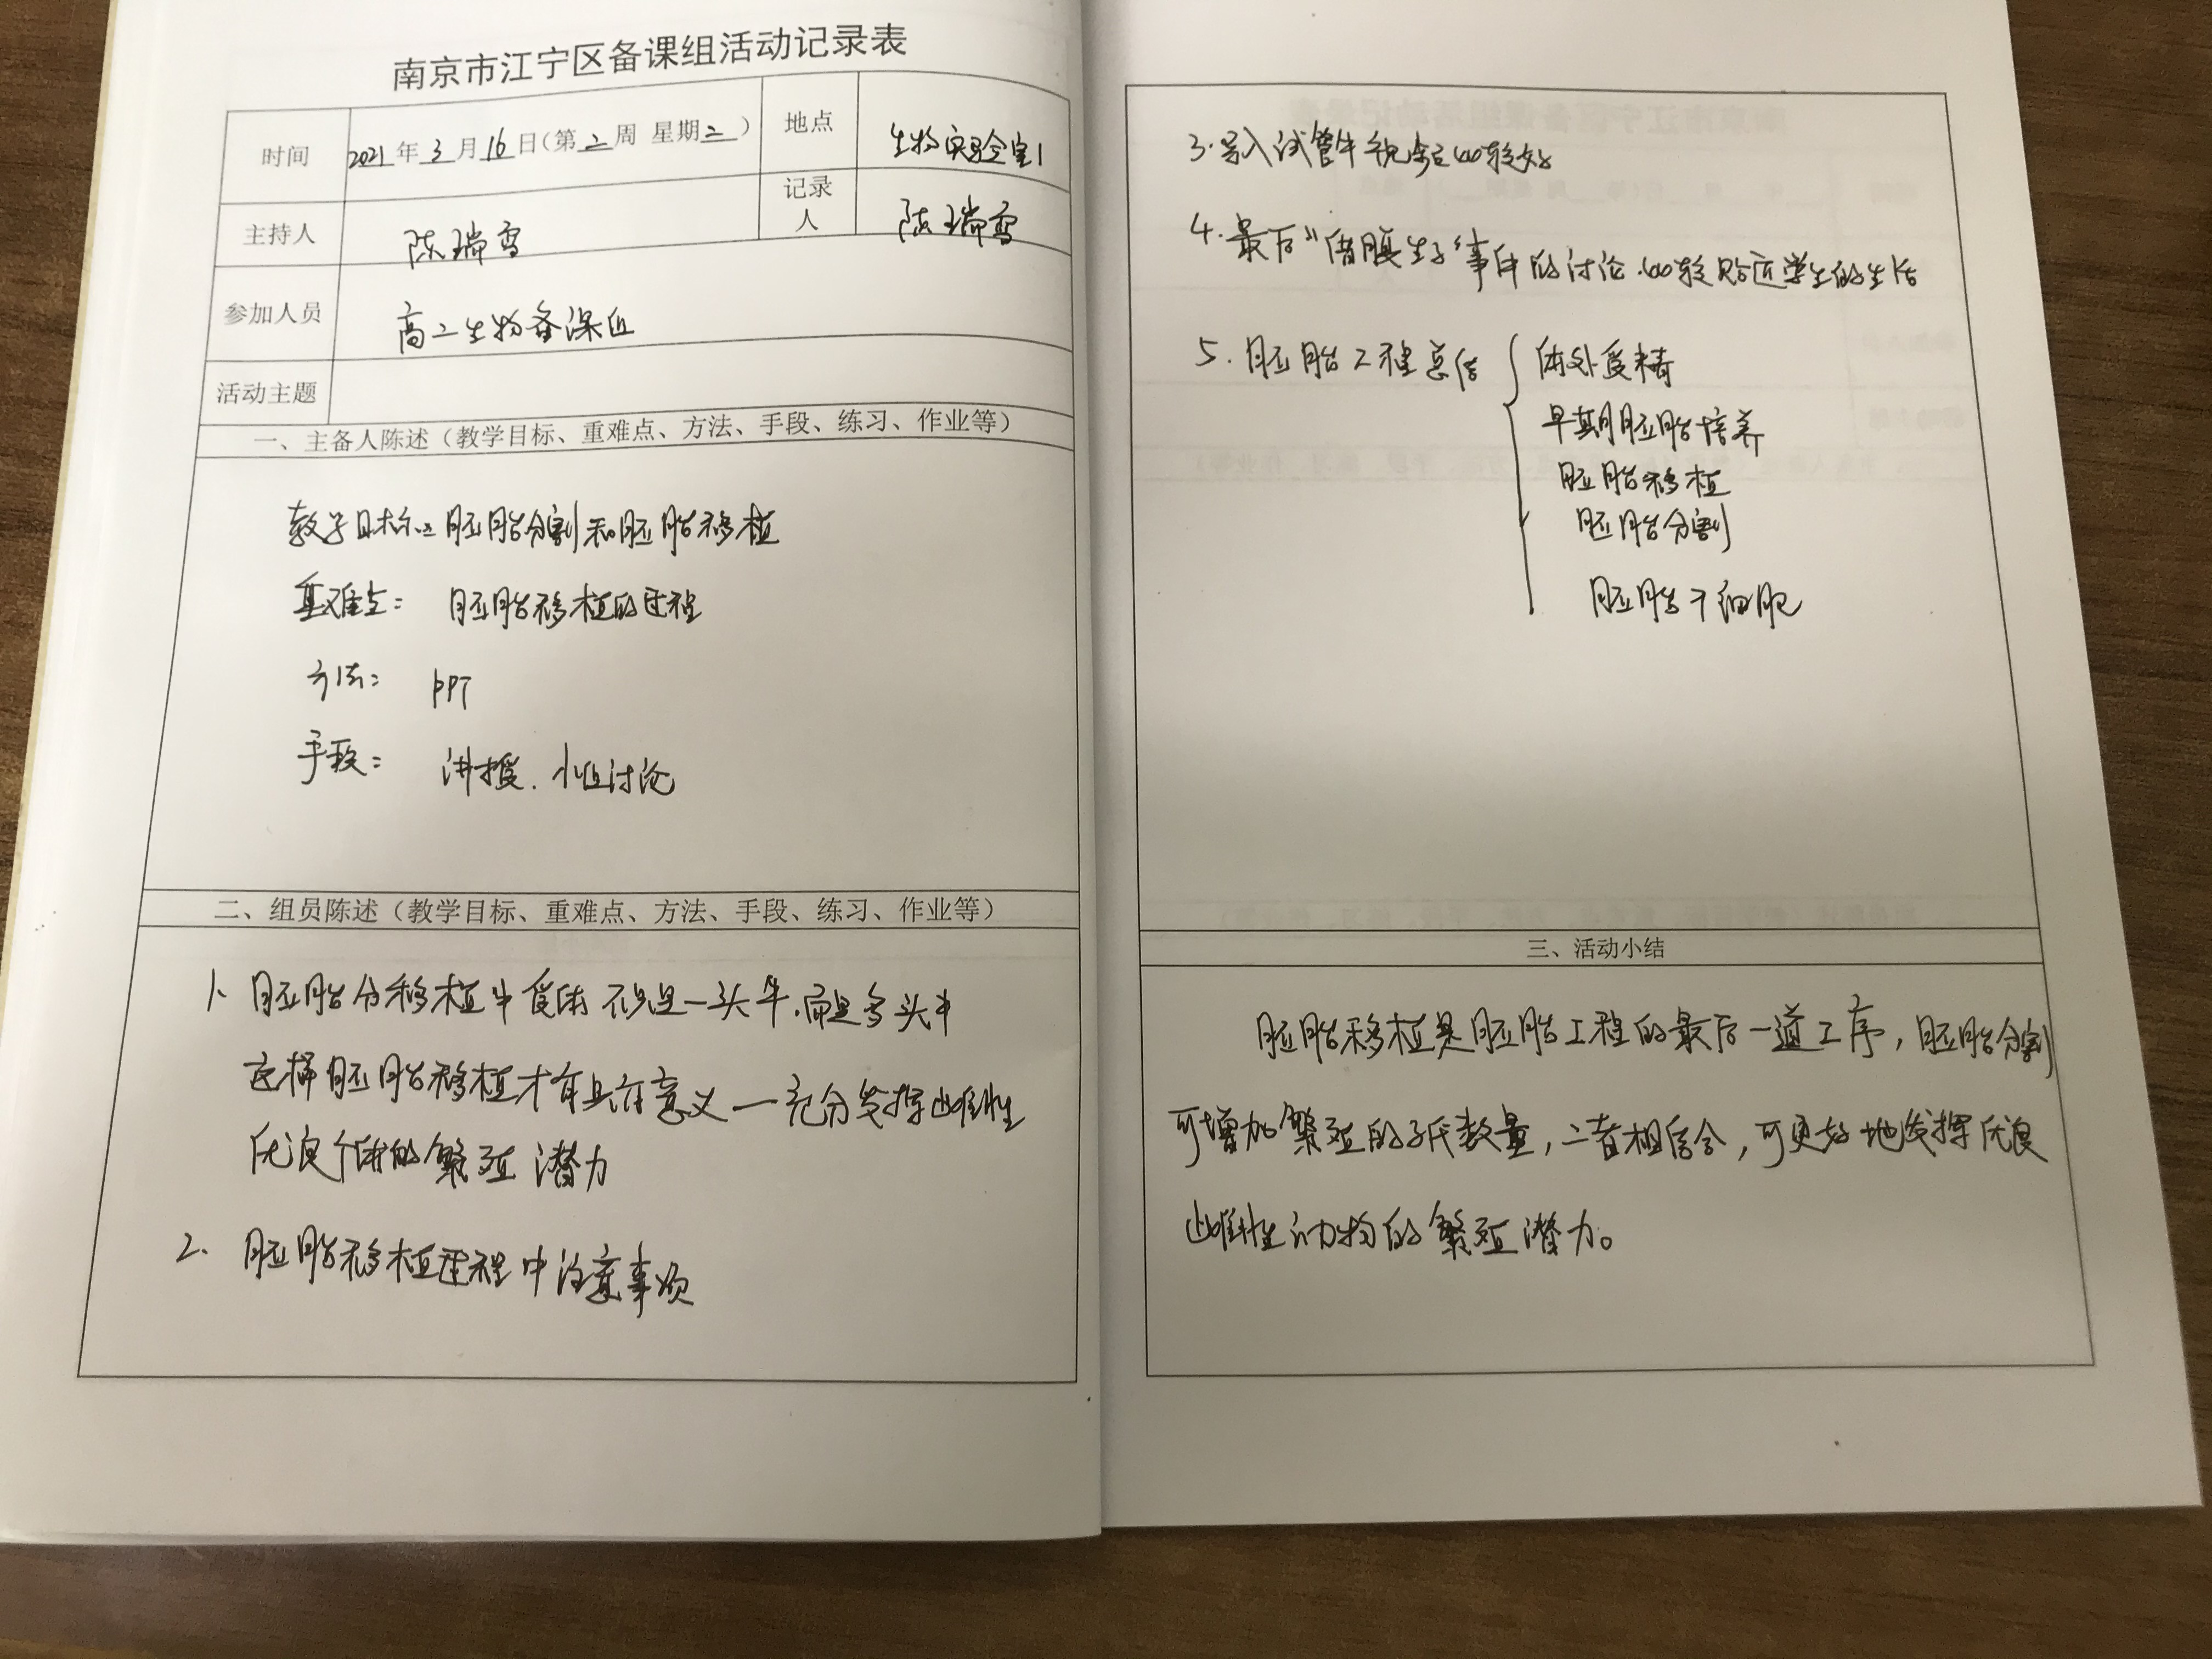 南京市江宁区备课组活动记录表
时间 2021年3月16日(第二周 星期二) 地点 生物实验室1
主持人 陈瑞雪 记录人 陈瑞雪
参加人员 高二生物备课组
活动主题
一、主备人陈述（教学目标、重难点、方法、手段、练习、作业等）
教学目标：胚胎分割和胚胎移植
重难点： 胚胎移植的过程
方法： PPT
手段： 讲授．小组讨论
二、组员陈述（教学目标、重难点、方法、手段、练习、作业等）
1、胚胎分移植中受体不只是一头牛，而是多头牛
这样胚胎移植才有具有意义—充分发挥雌性
优良个体的繁殖潜力
2、胚胎移植过程中注意事项
3.导入试管牛视频比较好
4.最后"借腹生子"事件的讨论．比较贴近学生的生活
5.胚胎工程总结 体外受精
早期胚胎培养
胚胎移植
胚胎分割
胚胎干细胞
三、活动小结
胚胎移植是胚胎工程的最后一道工序，胚胎分割
可增加繁殖的子代数量，二者相结合，可更好地发挥优良
雌性动物的繁殖潜力。